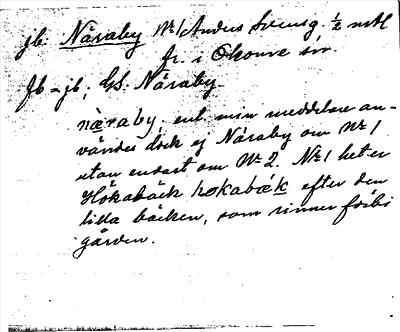 jb. Näraby No 1 Anders Svensg. ½ mtl
fr. i Okome sn.
fb = jb; GS. Näraby
næraby. enl. min meddelare an-
vändes dock ej Näraby om No 1
utan endast om No 2. No 1 heter
Hökabäck høkabæk efter den
lilla bäcken, som rinner förbi
gården.